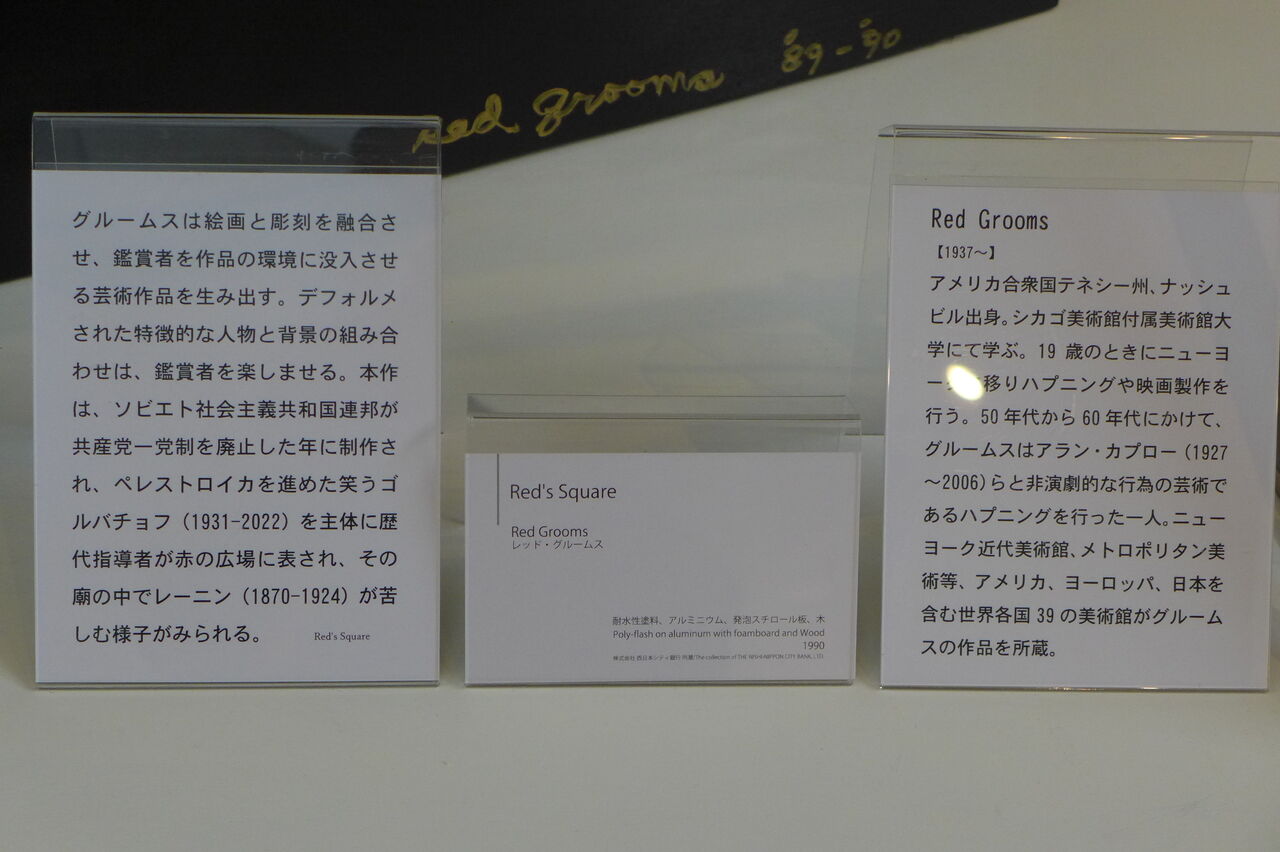 red grooms '89-'90
グルームスは絵画と彫刻を融合さ
せ、鑑賞者を作品の環境に没入させ
る芸術作品を生み出す。デフォルメ
された特徴的な人物と背景の組み合
わせは、鑑賞者を楽しませる。本作
は、ソビエト社会主義共和国連邦が
共産党一党制を廃止した年に制作さ
れ、ペレストロイカを進めた笑うゴ
ルバチョフ（1931-2022）を主体に歴
代指導者が赤の広場に表され、その
廟の中でレーニン（1870-1924）が苦
しむ様子がみられる。 Red's Square
Red's Square
Red Grooms
レッド・グルームス
耐水性塗料、アルミニウム、発泡スチロール板、木
Poly-flash on aluminum with foamboard and Wood
1990
株式会社 西日本シティ銀行 所蔵/The collection of THE NISHI-NIPPON CITY BANK, LTD.
Red Grooms
【1937〜】
アメリカ合衆国テネシー州、ナッシュ
ビル出身。シカゴ美術館付属美術館大
学にて学ぶ。19 歳のときにニューヨ
ー 移りハプニングや映画製作を
行う。50 年代から 60 年代にかけて、
グルームスはアラン・カプロー（1927
〜2006）らと非演劇的な行為の芸術で
あるハプニングを行った一人。ニュー
ヨーク近代美術館、メトロポリタン美
術等、アメリカ、ヨーロッパ、日本を
含む世界各国 39 の美術館がグルーム
スの作品を所蔵。